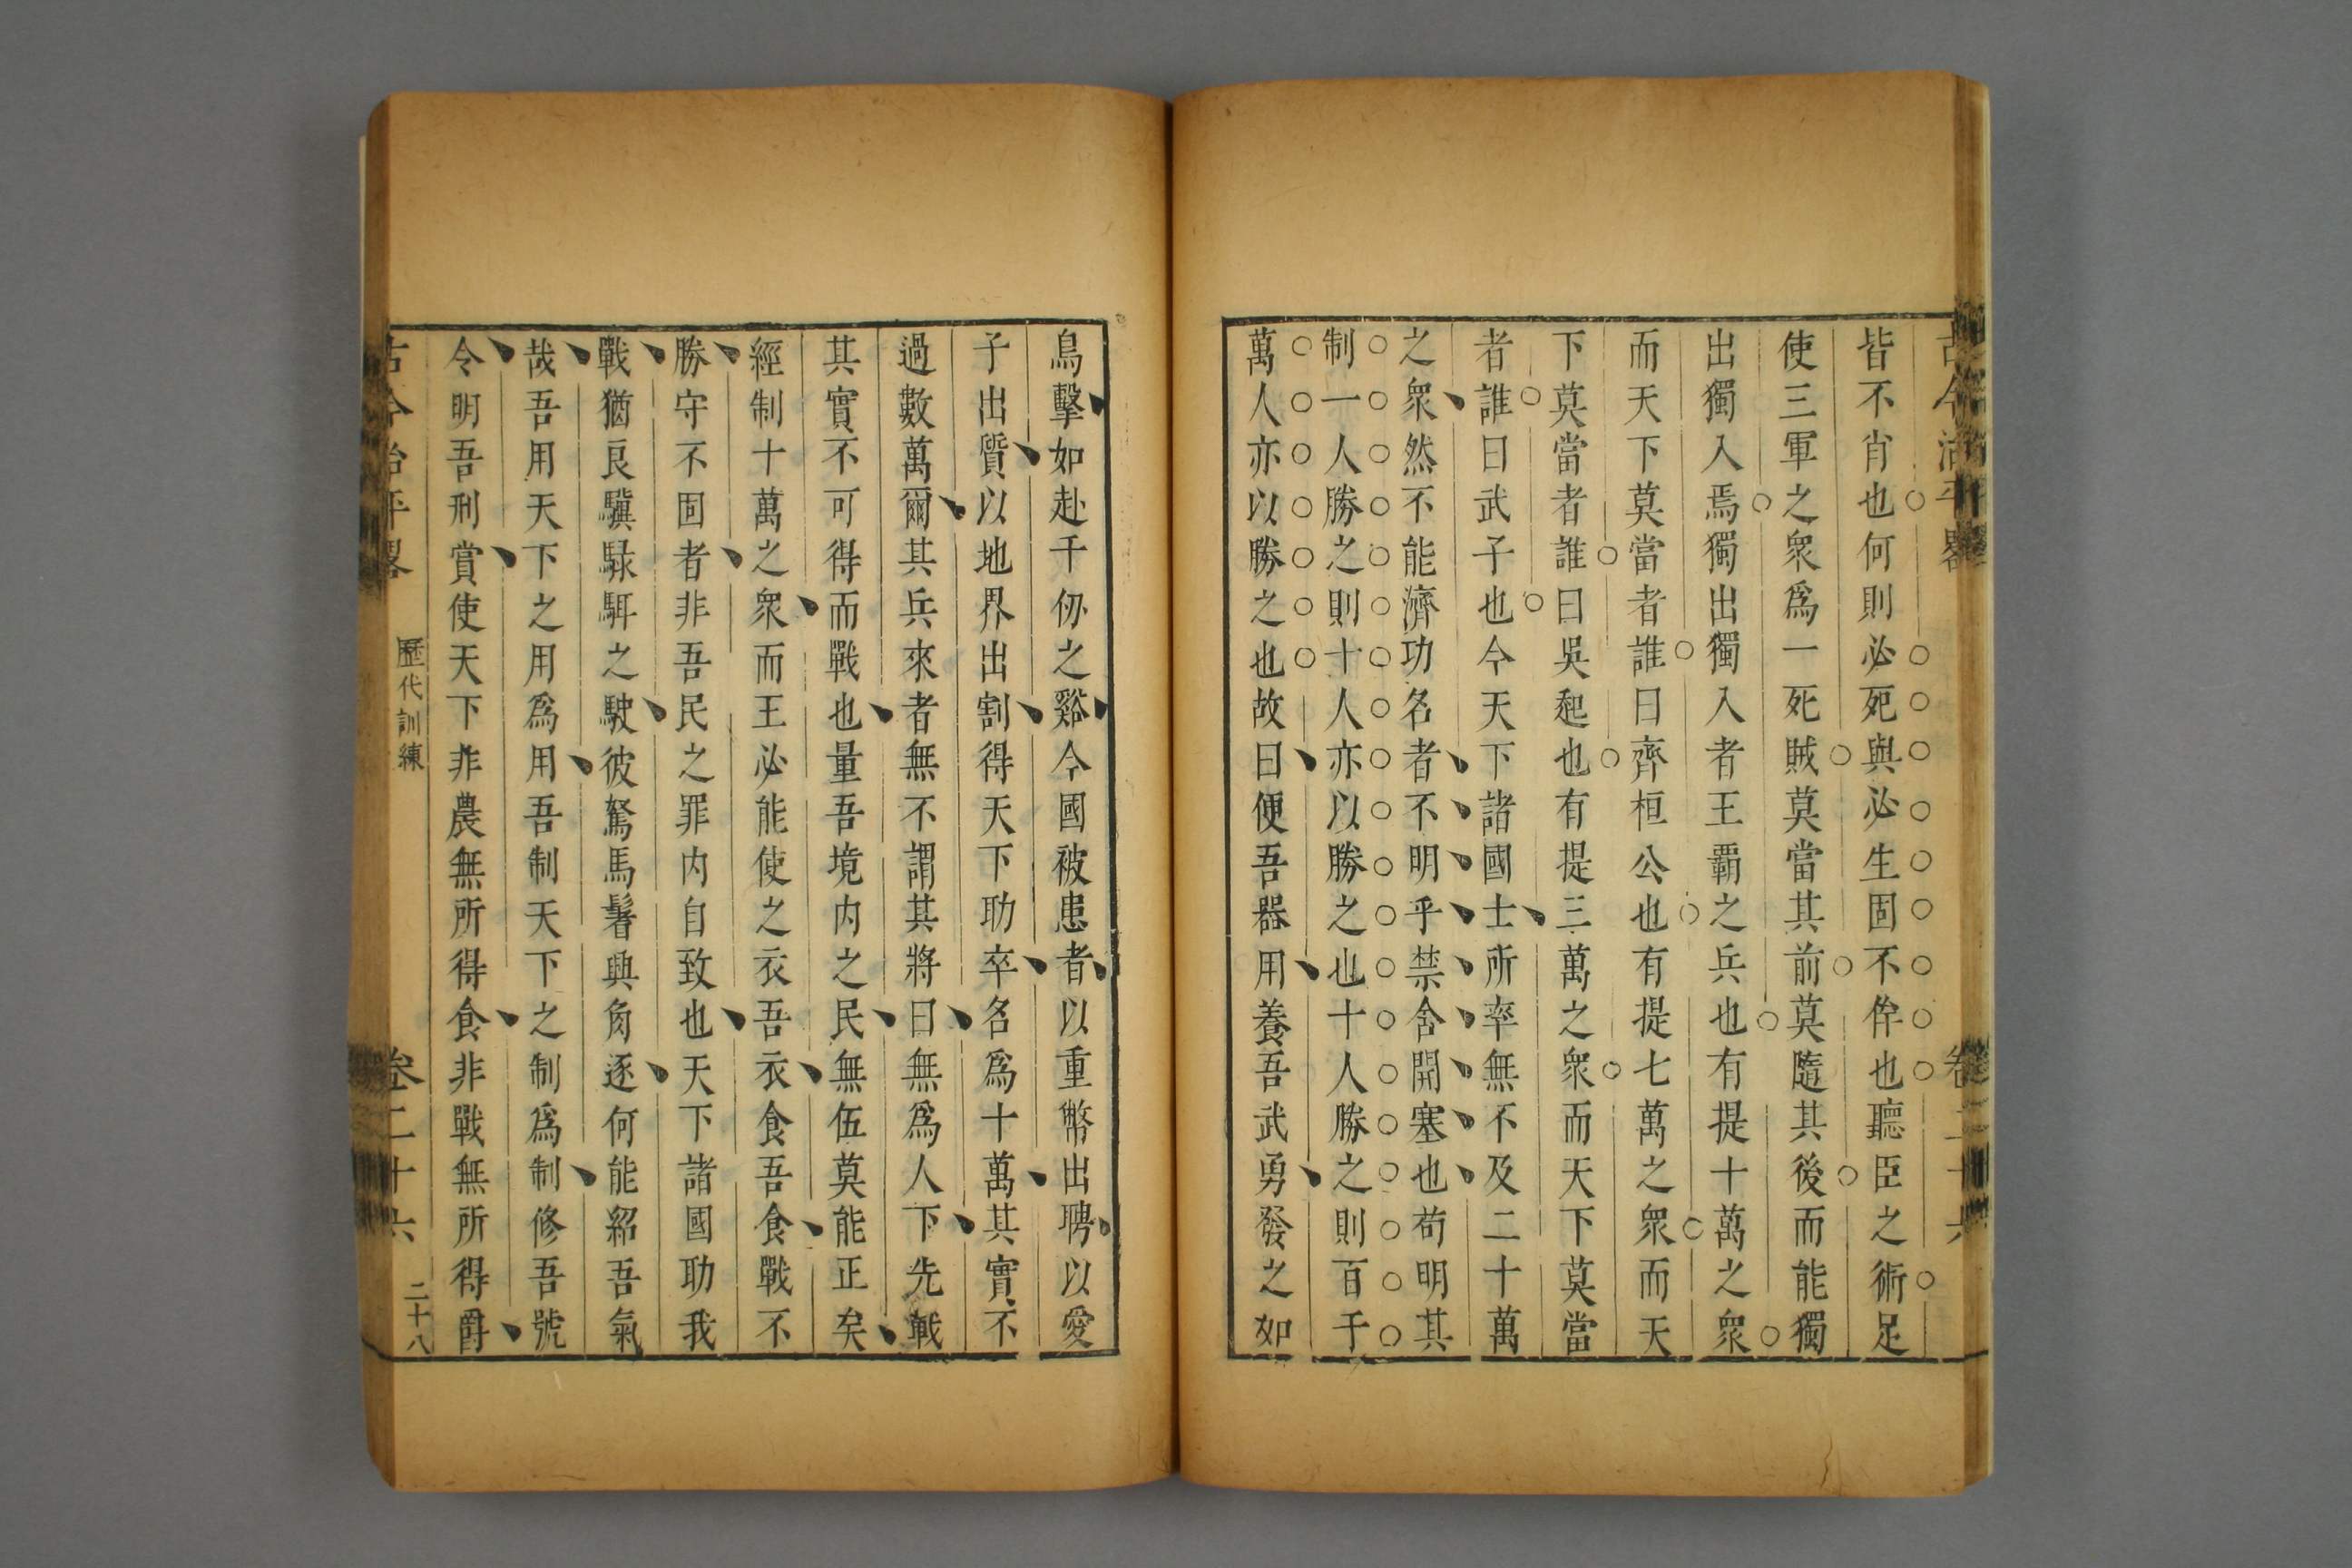 古今治平畧
卷二十六
皆不肖也何則必死與必生固不侔也聽臣之術足
使三軍之衆爲一死賊莫當其前莫隨其後而能獨
出獨入焉獨出獨入者王霸之兵也有提十萬之衆
而天下莫當者誰曰齊桓公也有提七萬之衆而天
下莫當者誰曰吳起也有提三萬之衆而天下莫當
者誰曰武子也今天下諸國士所率無不及二十萬
之衆然不能濟功名者不明乎禁舍開塞也苟明其
制一人勝之則十人亦以勝之也十人勝之則百千
萬人亦以勝之也故曰便吾器用養吾武勇發之如
鳥擊如赴千仞之谿今國被患者以重幣出聘以愛
子出質以地界出割得天下助卒名爲十萬其實不
過數萬爾其兵來者無不謂其將曰無爲人下先戰
其實不可得而戰也量吾境内之民無伍莫能正矣
經制十萬之衆而王必能使之衣吾衣食吾食戰不
勝守不固者非吾民之罪内自致也天下諸國助我
戰猶良驥騄駬之駛彼駑馬鬐與角逐何能紹吾氣
哉吾用天下之用爲用吾制天下之制爲制修吾號
令明吾刑賞使天下非農無所得食非戰無所得爵
古今治平畧
歷代訓練
卷二十六
二十八